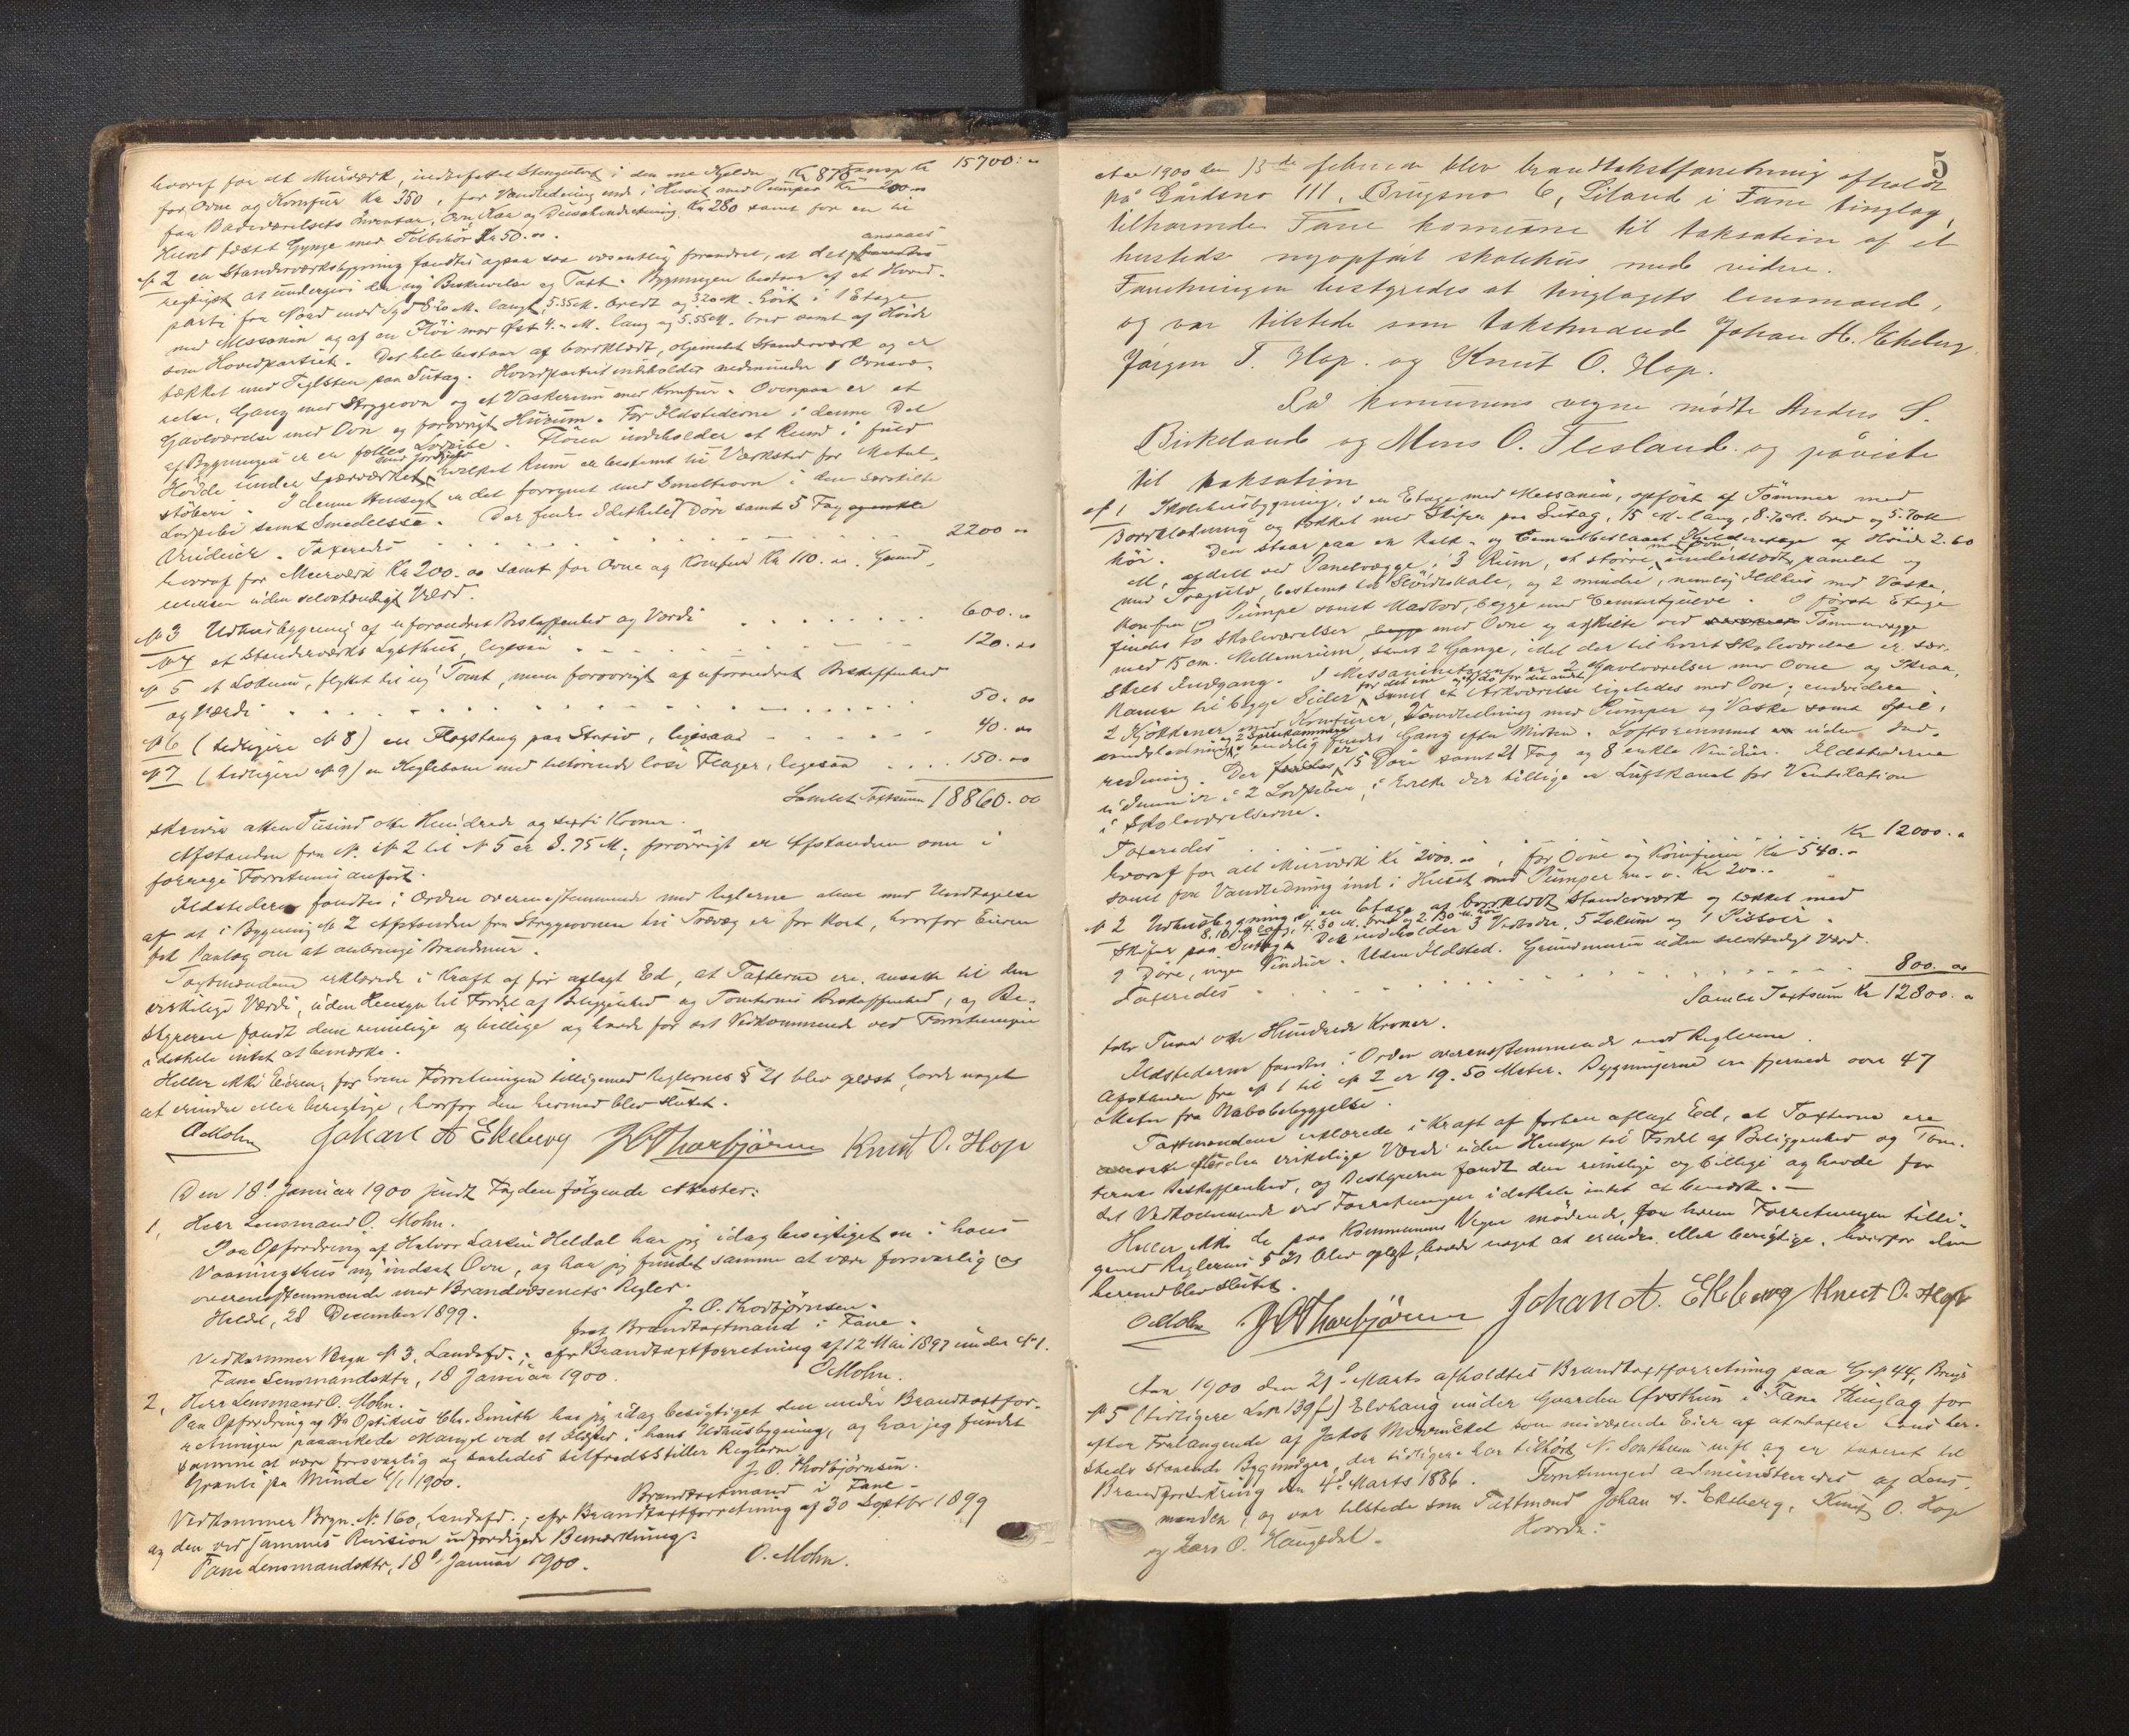 Transp Kr 15700.00
hvoraf for alt Murværk, indbefattet i den ene Kjelder, Kr 870
for Ovne og Komfur Kr 350, for Vandledning inde i Huset med Pumper Kr 200.00
for Badeværelsets Inventar, Ovn, Kar og Kr 280 samt for en til
Huset fæstet Gynge med Tilbehör Kr 50.00.
№ 2 en Standerværksbygning fandtes ogsaa saa væsentlig forandret, at det ansaaes
rigtigst at undergive den ny Beskrivelse og Taxt. Bygningen bestaar af et Hoved-
parti fra Nord mod Syd 8.20 M. langt, 5.35 M. bredt og 3.20 M. höit i 1 Etage
med Messanin og af en Flöi mod Öst 4.- M. lang og 5.55 M. bred samt af Höide
som Hovedpartiet. Det hele bestaar af bordklædt, oljemalet Standerværk og er
tækket med Teglsten paa Sutag. Hovedpartiet indeholder nedenunder 1
relse, Gang med Strygeovn og et Vaskerum med Komfur. Ovenpaa er et
Gavlværelse med Ovn og forövrigt Husrum. For Ildstederne i denne Del
af Bygningen er en fælles Lodpibe. Flöien indeholder et Rum i fuld
Höide under Sperværket med Jordgulv, hvilket Rum er bestemt til Værksted for Metal-
stöberi. I denne Hensigt er det forsynet med Smelteovn i den særskilte
Lodpibe samt Smedeesse. Der findes i det hele 7 Döre samt 5 Fag
Vinduer. Taxeredes . . . . . . . . . . 2200 00
hvoraf for Murværk Kr 200.00 samt for Ovne og Komfur Kr 110.00. Grund-
muren uden selvstændigt Værd.
№ 3 Udhusbygning af uforandret Beskaffenhed og Værdi . . . . . . 600.00
№ 4 et Standerværks Lysthus, ligesaa . . . . . . . . 120.00
№ 5 et Lokum, flyttet til ny Tomt, men forövrigt af uforandret Beskaffenhed
og Værdi . . . . . . . . . . . . 50.00
№ 6 (tidligere № 8) en Flagstang paa Stativ, ligesaa . . . . . . 40.00
№ 7 (tidligere № 9) en Keglebane med tilhörende löse Flager, ligesaa . . . . 150.00
Samlet Taxtsum 18860.00
skriver atten Tusind otte Hundrede og sexti Kroner.
Afstanden fra № 2 til № 5 er 8.75 M.; forövrigt er Afstanden som i
forrige Forretning anfört.
Ildstederne fandtes i Orden overensstemmende med Reglerne alene med Undtagelse
af at i Bygning № 2 Afstanden fra Strygeovnen til Trævæg er for kort, hvorfor Eieren
fik Paalæg om at anbringe Brandmur.
Taxtmændene erklærede i Kraft af för aflagt Ed, at Taxterne ere ansatte til den
virkelige Værdi, uden Hensyn til Fordel af Beliggenhed og Tomternes Beskaffenhed, og Be-
styreren fandt dem rimelige og billige og havde for det Vedkommende ved Forretningen
idethele intet at bemærke.
Heller ikke Eieren, for hvem Forretningen tilligemed Reglernes § 21 blev oplæst, havde noget
at erindre eller berigtige, hvorfor den hermed blev sluttet.
O Mohn Johan A Ekeberg J O Thorbjörnsen Knut O. Hop
Den 18de Januar 1900 findt. Fogden fölgende Attester:
1, Herr Lensmand O. Mohn.
Paa Opfordring af Halvor Larsen Heldal har jeg idag besigtiget en i hans
Vaaningshus ny indsat Ovn, og har jeg fundet samme at være forsvarlig og
overensstemmende med Brandvæsenets Regler.
Heldal, 28 December 1899.
J. O. Thorbjørnsen.
fast Brandtaxtmand i Fane.
Vedkommer Brgn № 3, Landsfd.; cfr Brandtaxtforretning af 12 Mai 1897 under № 1.
Fane Lensmandsktr, 18 Januar 1900.
O Mohn.
2, Herr Lensmand O. Mohn.
Paa Opfordring af Optikus Chr. Smith har jeg idag besigtiget den under Brandtaxtfor-
retningen paaankede Mangel ved et Ildsted i hans Udhusbygning, og har jeg fundet
samme at være forsvarlig og saaledes tilfredsstiller Reglerne.
Granli paa Minde 6/1 1900.
J. O. Thorbjørnsen.
Brandtaxtmand i Fane.
Vedkommer Brgn. № 160, Landsfd.; cfr Brandtaxtforretning af 30 Septbr 1899
og den ved sammes Revision udfærdigede Bemærkning.
Fane Lensmandsktr, 18de Januar 1900.
O. Mohn.
5
Aar 1900 den 13de februar blev brandtakstforretning afholdt
på Gårdsno 111, Brugsno 6, Liland i Fane tinglag,
tilhørende Fane kommune til taksation af et
hersteds nyopført skolehus med videre.
Forretningen bestyredes af tinglagets lensmand,
og var tilstede som takstmænd Johan A. Ekeberg,
Jørgen T. Hop. og Knut O. Hop.
På kommunens vegne mødte Anders S.
Birkeland og Mons O. Flesland og påviste
til taksation
№ 1 Skolehusbygning, i en Etage med Messanin, opfört af Tömmer med
Bordklædning og tækket med Skifer paa Sutag, 15 M. lang, 8.70 M. bred og 5.70 M
höi. Den staar paa en kalk- og Cementbeslaaet Kjelderetage af Höide 2.60
M., afdelt ved Panelvægge i 3 Rum, et större, med Ovn, underklædt, panelet og
med Trægulv, bestemt til Slöidskole, og 2 mindre, nemlig Ildhus med Vaske,
Komfur og Pumpe samt Madbod, begge med Cementgulve. I förste Etage
findes to Skoleværelser med Ovne og adskilte ved Tömmervægge
med 15 cm. Mellemrum, samt 2 Gange, idet der til hvert Skoleværelse er sær-
skilt Indgang. I Messaninetagen er 2 Gavlværelser med Ovne og Skraa-
kamre til begge Sider for det ene og til en Side for det andet, samt et Arkværelse ligeledes med Ovn; endvidere
2 Kjökkener med Komfurer, Vandledning med Pumper og Vaske samt Spil-
vandsledning og 2 Spisekammere, endelig findes Gang efter Midten. Loftsrummet er uden Ind-
redning. Der er 15 Döre samt 21 Fag og 8 enkle Vinduer. Ildstederne
udmunder i 2 Lodpiber, i hvilke der tillige er Luftkanal for Ventilation
i Skoleværelserne.
Taxeredes . . . Kr 12000.00
hvoraf for alt Murværk Kr 2000.00, for Ovne og Komfurer Kr 540.-
samt for Vandledning ind i Huset med Pumper m. v. Kr 200.-
№ 2 Udhusbygning i en Etage af bordklædt Standerværk og tækket med
Skifer paa Sutag, 8.10 M. lang, 4.30 M. bred og 2.30 M. höi. Den indeholder 3 Vedboder, 5 Lokum og 1 Pissoir.
9 Döre, ingen Vinduer. Uden Ildsted. Grundmuren uden selvstændigt Værd.
Taxeredes . . . . . . . . 800.00
Samlet Taxtsum Kr 12800.00
tolv Tusind otte Hundrede Kroner.
Ildstederne fandtes i Orden overensstemmende med Reglerne.
Afstanden fra № 1 til № 2 er 19.50 Meter. Bygningerne ere fjernede over 47
Meter fra Nabobebyggelse.
Taxtmændene erklærede i Kraft af forhen aflagt Ed, at Taxterne ere
ansatte efter den virkelige Værdi uden Hensyn til Fordel af Beliggenhed og Tom-
ternes Beskaffenhed, og Bestyreren fandt dem rimelige og billige og havde for
det Vedkommende ved Forretningen idethele intet at bemærke.—
Heller ikke de paa Kommunens Vegne mödende, for hvem Forretningen tilli-
gemed Reglernes § 21 blev oplæst, havde noget at erindre eller berigtige, hvorfor den
hermed blev sluttet.
O Mohn J O Thorbjörnsen Johan A. Ekeberg Knut O. Hop
Aar 1900 den 21de Marts afholdtes Brandtaxtforretning paa G.№ 44, Brugs
№ 5 (tidligere L№ 139f) Elvhaug under Gaarden Övsthun i Fane Thinglag for
efter Forlangende af Jakob som nuværende Eier af at omtaxere hans her-
steds staaende Bygninger, der tidligere har tilhört N. Sonthum og er taxeret til
Brandforsikring den 4de Marts 1886. Forretningen administreredes af Lens-
manden, og var tilstede som Taxtmænd Johan A. Ekeberg, Knut O. Hop
og Lars O. Haugsdal.
Hvorda: